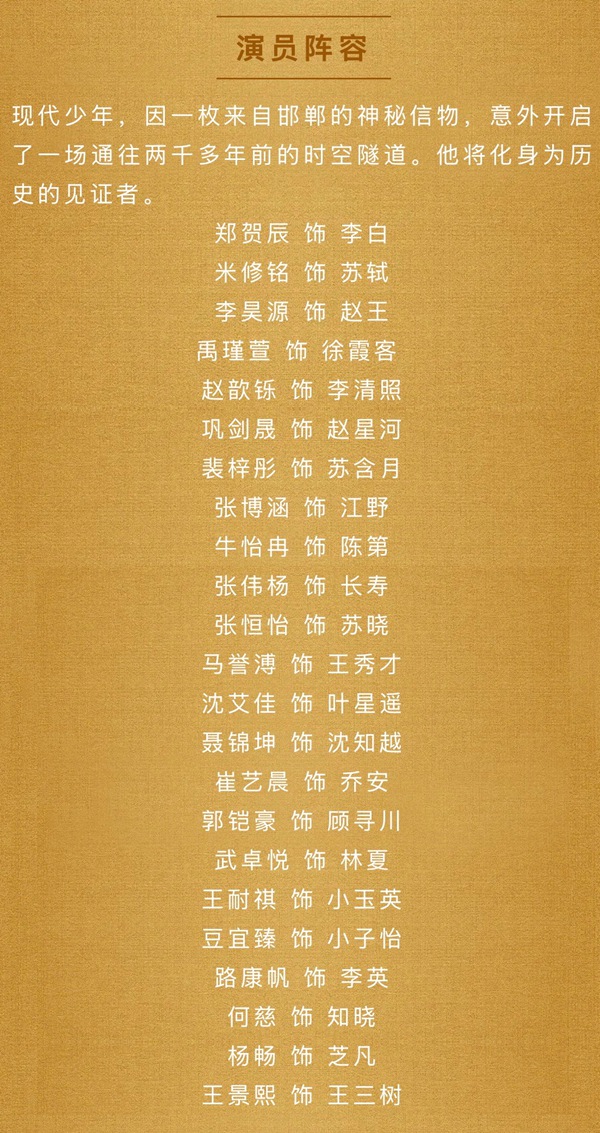 演员阵容
现代少年，因一枚来自邯郸的神秘信物，意外开启
了一场通往两千多年前的时空隧道。他将化身为历
史的见证者。
郑贺辰 饰 李白
米修铭 饰 苏轼
李昊源 饰 赵王
禹瑾萱 饰 徐霞客
赵歆铄 饰 李清照
巩剑晟 饰 赵星河
裴梓彤 饰 苏含月
张博涵 饰 江野
牛怡冉 饰 陈第
张伟杨 饰 长寿
张恒怡 饰 苏晓
马誉溥 饰 王秀才
沈艾佳 饰 叶星遥
聂锦坤 饰 沈知越
崔艺晨 饰 乔安
郭铠豪 饰 顾寻川
武卓悦 饰 林夏
王耐祺 饰 小玉英
豆宜臻 饰 小子怡
路康帆 饰 李英
何慈 饰 知晓
杨畅 饰 芝凡
王景熙 饰 王三树